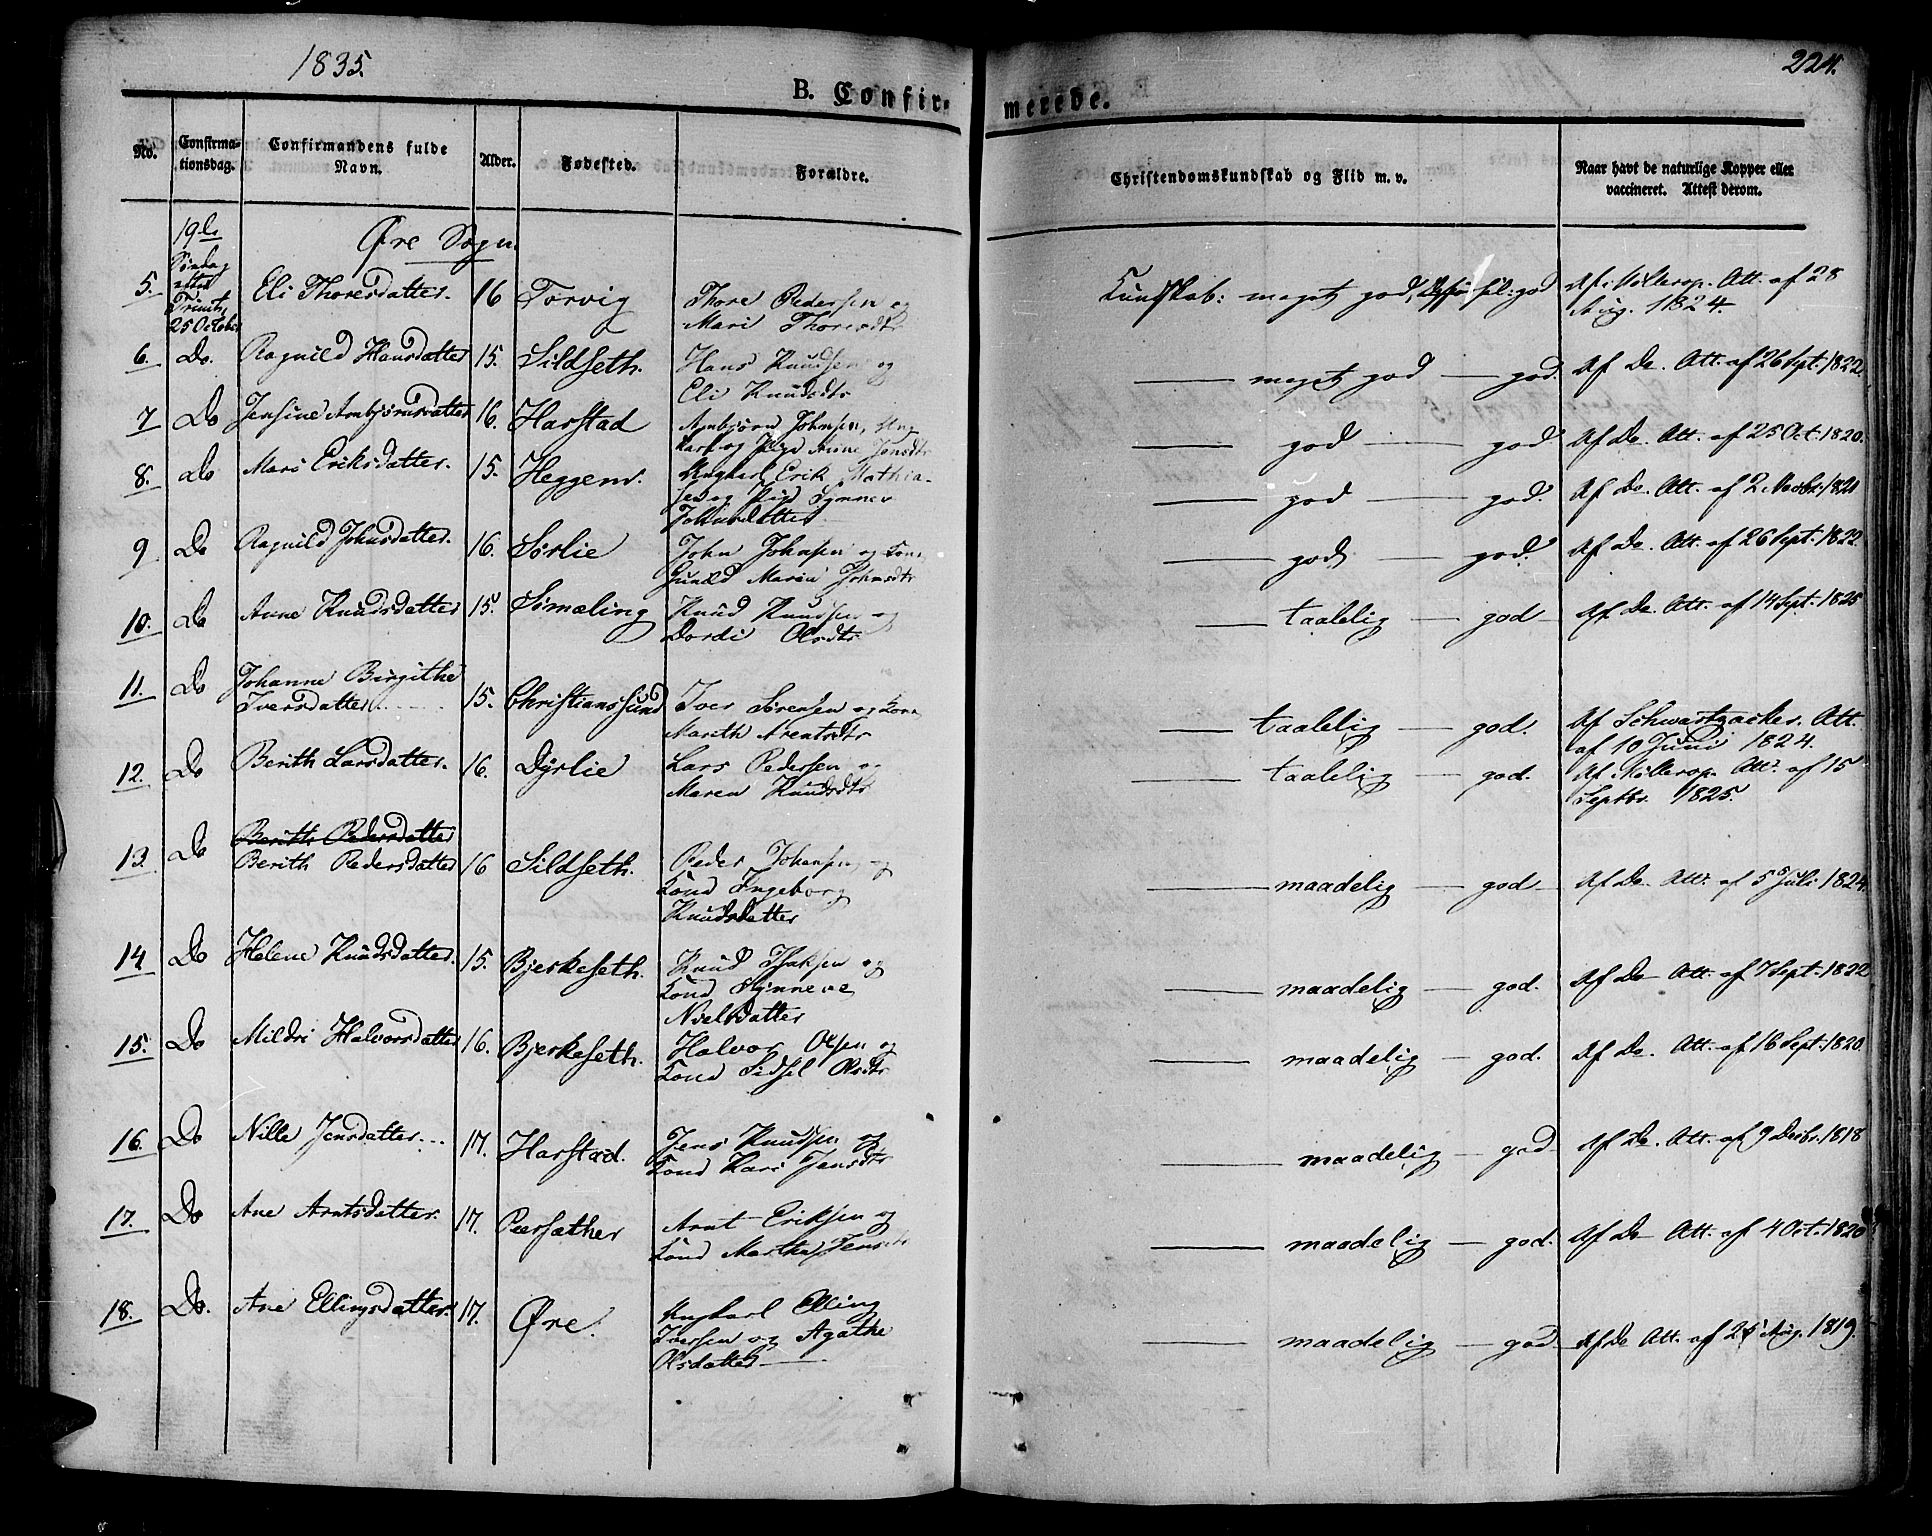 1835.
224.
B. Confirmerede.
No.
Confirmationsdag.
Confirmandens fulde Navn.
Alder.
Fødested.
Forældre.
Christendomskundskab og Flid m. v.
Naar havt de naturlige Kopper eller vaccineret. Attest derom.
19de Søndag efter Trinit. 25 October
Øre Sogn.
5. Eli Thoresdatter. 16 Torvig Thore Pedersen og Mari Thoresdtr Kundskab: meget god, god Att. af 28 Aug. 1824.
6. Do. Ragnild Hansdatter 15. Sildseth. Hans Knudsen og Eli Knudsdtr — meget god — god. Af Do. Att. af 26 Sept. 1822.
7 Do Jensine Arnbjørnsdatter 16. Harstad Arnbjørn Johnsen, Ungkarl og Pige Anne Jensdtr — god — god Af Do. Att. af 25 Oct. 1820.
8. do Mari Eriksdatter. 15. Heggem. Ungkarl Erik Mathiasen og Pige Synnev Johnsdatter — god — god. Af Do. Att. af 2 Novbr. 1821
9 Do Ragnild Johnsdatter. 16. Sørlie John Johnsen og Kone Gunild Marie Johnsdtr — god — god. Af Do. Att. af 26 Sept. 1822.
10. Do Anne Knudsdatter 15. Sømæling Knud Knudsen og Dordi Olsdtr — taalelig — god Af Do. Att. af 14 Sept. 1825
11. Do Johanne Birgithe Iversdatter 15. Christianssund Iver Sørensen og Kone Marith Arentsdtr — taalelig — god. Af Schwartzacker. Att. af 10 Juni 1824.
12. Do Berith Larsdatter. 16. Dÿrlie Lars Pedersen og Maren Knudsdtr — taalelig — god. Af Att. af 15 Septbr. 1825.
13. Do Berith Pedersdatter
Berith Pedersdatter 16 Sildseth. Peder Johansen og Kone Ingeborg Knudsdatter — maadelig — god Af Do. Att. af 5 Juli 1824.
14 Do Helene Knudsdatter. 15. Bjerkeseth. Knud Isaksen og Kone Synneve Nielsdatter — maadelig — god. Af Do Att. af 7 Sept. 1822
15. Do Mildri Halvorsdatter 16. Bjerkeseth. Halvor Olsen og Kone Sidsel Olsdtr — maadelig — god. Af Do. Att. af 16 Sept. 1820.
16. Do Nille Jensdatter 17. Harstad. Jens Knudsen og Kone Kari Jensdtr — maadelig — god Af Do. Att. af 9 Decbr. 1818
17. Do Ane Arntsdatter. 17. Peersæther Arnt Eriksen og Kone Martha Jensdtr — maadelig — god. Af Do Att. af 4 Oct. 1820
18. Do. Ane Ellingsdatter. 17. Øre. Ungkarl Elling Iversen og Agathe Olsdatter — maadelig — god Af Do Att. af 25 Aug. 1819.